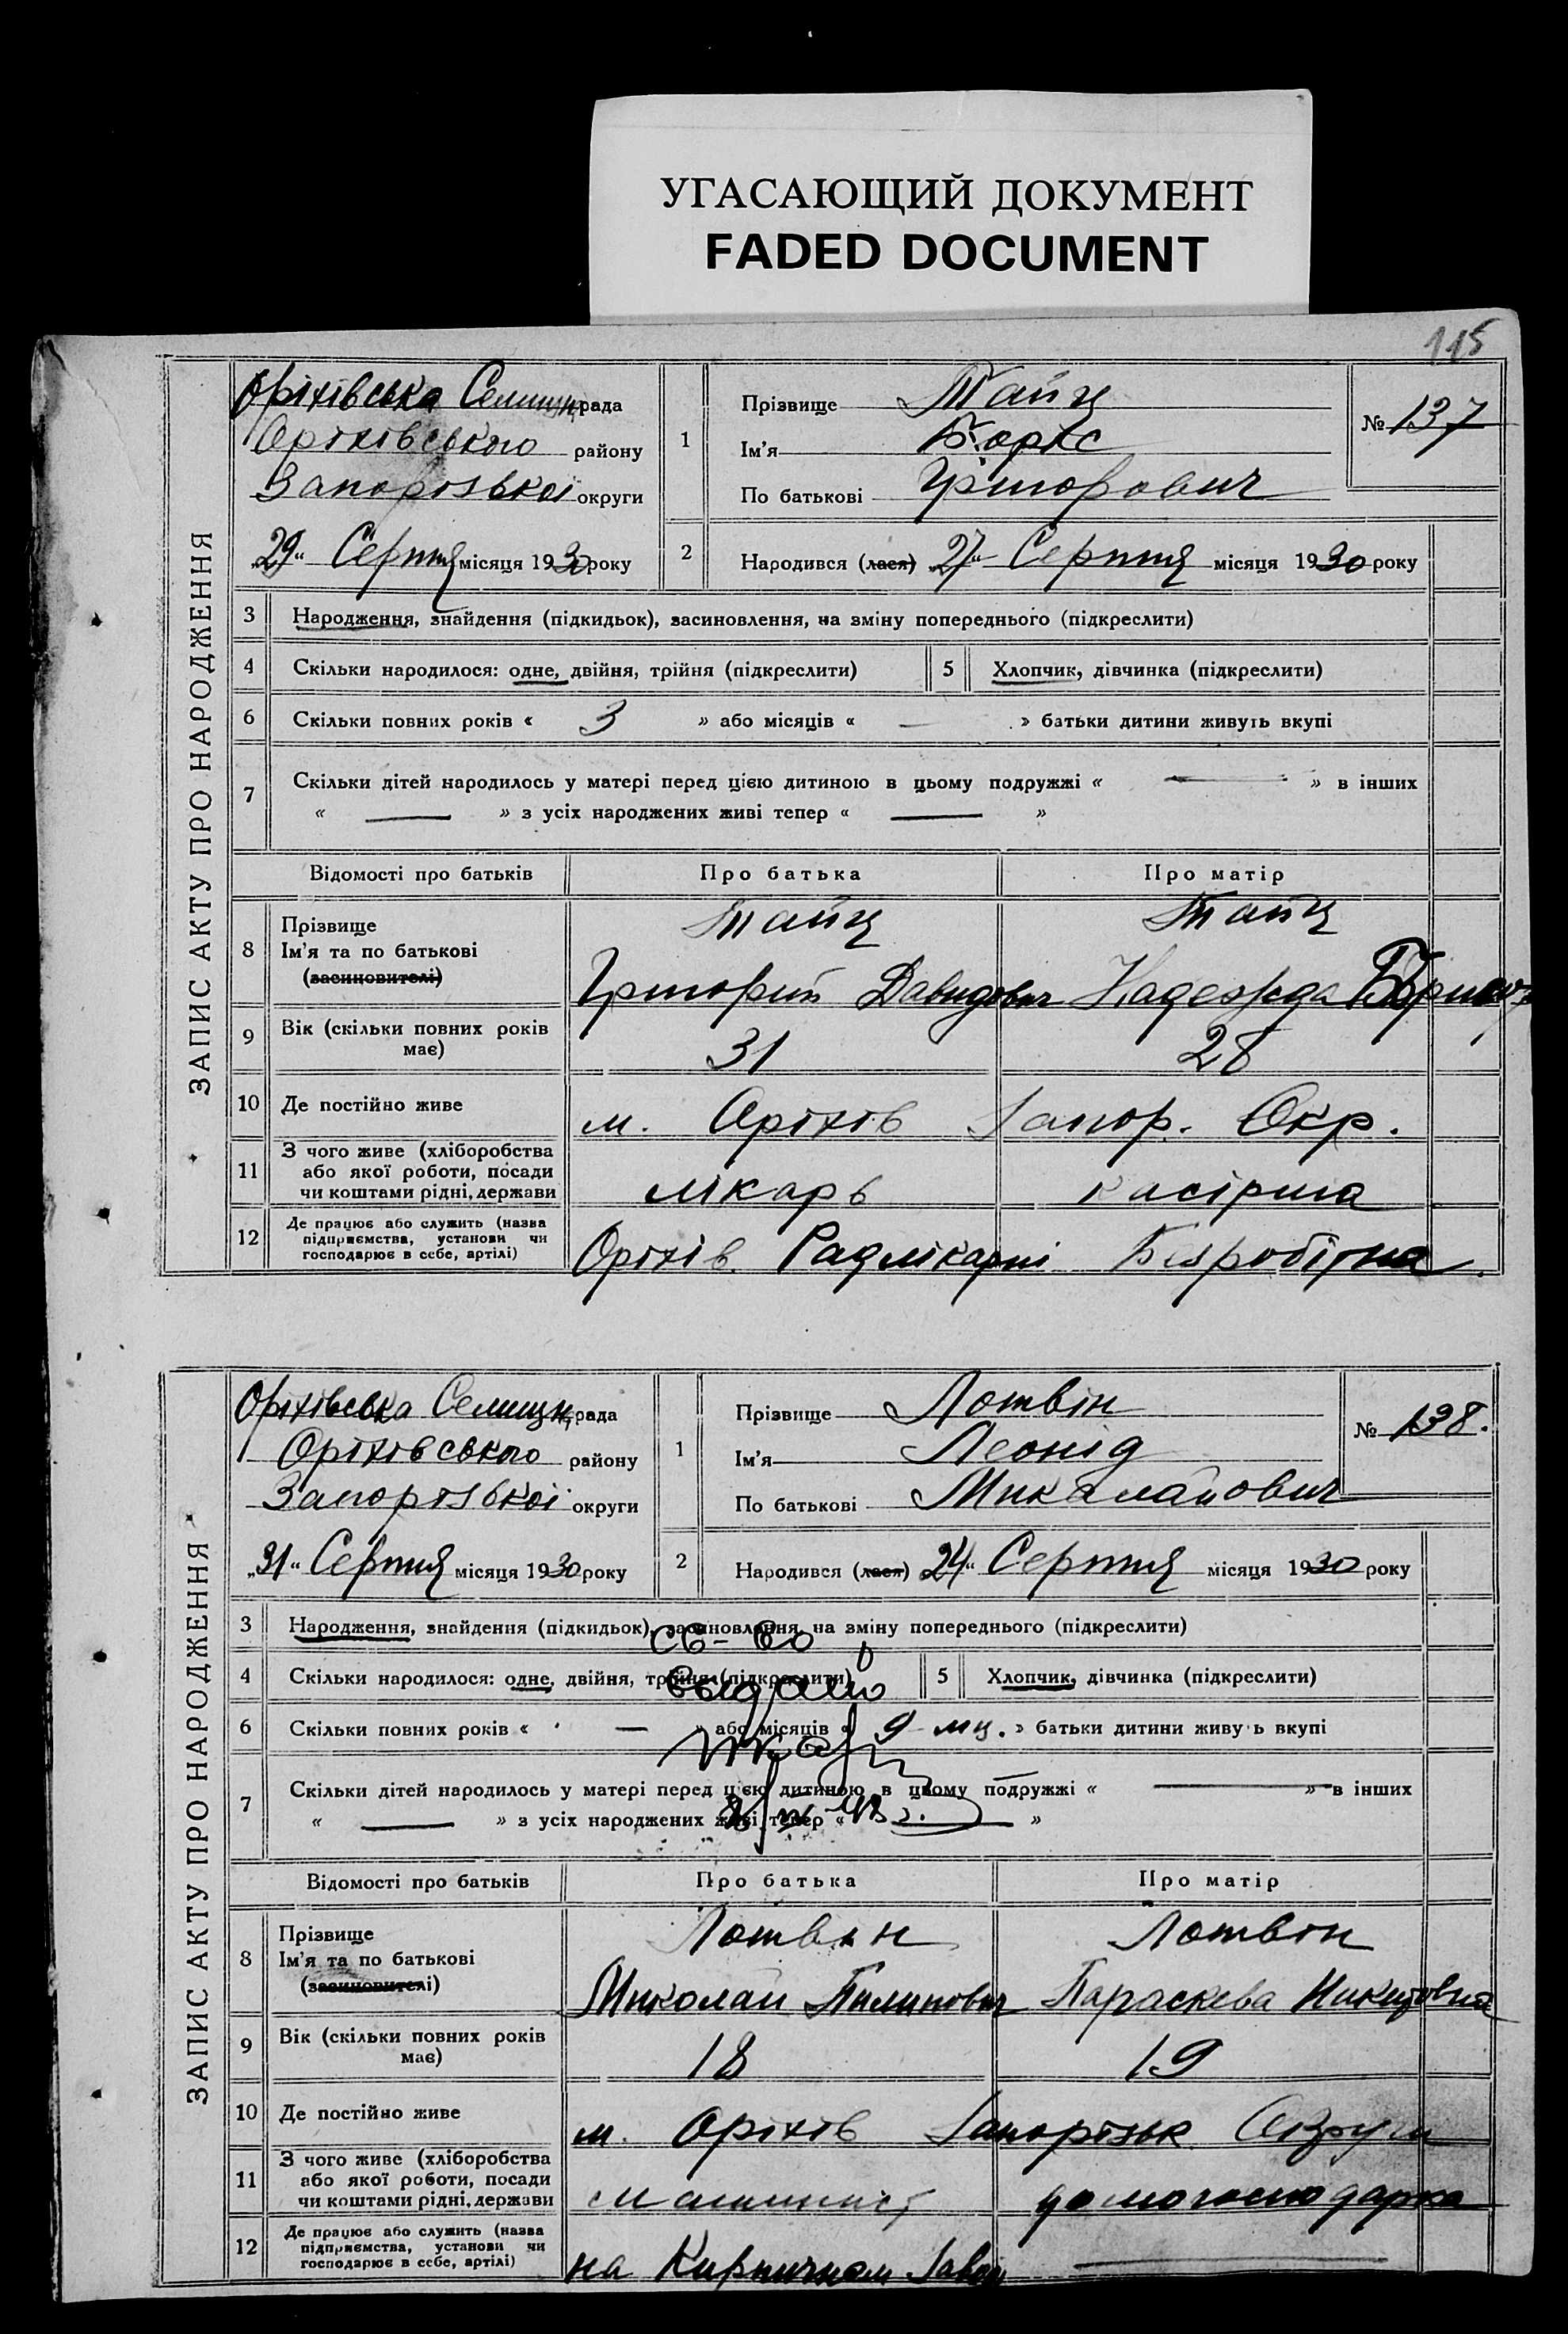 УГАСАЮЩИЙ ДОКУМЕНТ
FADED DOCUMENT
115
ЗАПИС АКТУ ПРО НАРОДЖЕННЯ
Оріхівська Селищн рада
Оріхівського району
Запорізької округи
„29“ Серпня місяця 1930 року
1
Прізвище Тайц
Ім’я Борис
По батькові Григорович
№ 137
2 Народився (лася) „27“ Серпня місяця 1930 року
3 Народження, знайдення (підкидьок), засиновлення, на зміну попереднього (підкреслити)
4 Скільки народилося: одне, двійня, трійня (підкреслити) 5 Хлопчик, дівчинка (підкреслити)
6 Скільки повних років « 3 » або місяців « — » батьки дитини живуть вкупі
7 Скільки дітей народилось у матері перед цією дитиною в цьому подружжі « — » в інших
« — » з усіх народжених живі тепер « — »
Відомості про батьків Про батька Про матір
8
Прізвище Тайц Тайц
Ім’я та по батькові
(засиновителі) Григорий Давидович Надежда
9 Вік (скільки повних років має) 31 28
10 Де постійно живе м. Оріхів Запор. Окр.
11 З чого живе (хліборобства
або якої роботи, посади
чи коштами рідні, держави лікарь касірша
12 Де працює або служить (назва
підприємства, установи чи
господарює в себе, артілі) Оріхів. Радлікарні Безробітна.
ЗАПИС АКТУ ПРО НАРОДЖЕННЯ
Оріхівська Селищн рада
Оріхівського району
Запорізької округи
„31“ Серпня місяця 1930 року
1
Прізвище Лотвін
Ім’я Леонід
По батькові Миколайович
№ 138.
2 Народився (лася) „24“ Серпня місяця 1930 року
3 Народження, знайдення (підкидьок), засиновлення, на зміну попереднього (підкреслити)
св-во
4 Скільки народилося: одне, двійня, трійня (підкреслити) 5 Хлопчик, дівчинка (підкреслити)
выдано
6 Скільки повних років « — » або місяців « 9 мц. » батьки дитини живуть вкупі
7 Скільки дітей народилось у матері перед цією дитиною в цьому подружжі « — » в інших
« — » з усіх народжених живі тепер « — »
Відомості про батьків Про батька Про матір
8
Прізвище Лотвін Лотвін
Ім’я та по батькові
(засиновителі) Миколай Пилипович Параскева Никитовна
9 Вік (скільки повних років має) 18 19
10 Де постійно живе м. Оріхів Запорізьк Округи
11 З чого живе (хліборобства
або якої роботи, посади
чи коштами рідні, держави машиніст домогосподарка
12 Де працює або служить (назва
підприємства, установи чи
господарює в себе, артілі) на Кирпичном Заводі —